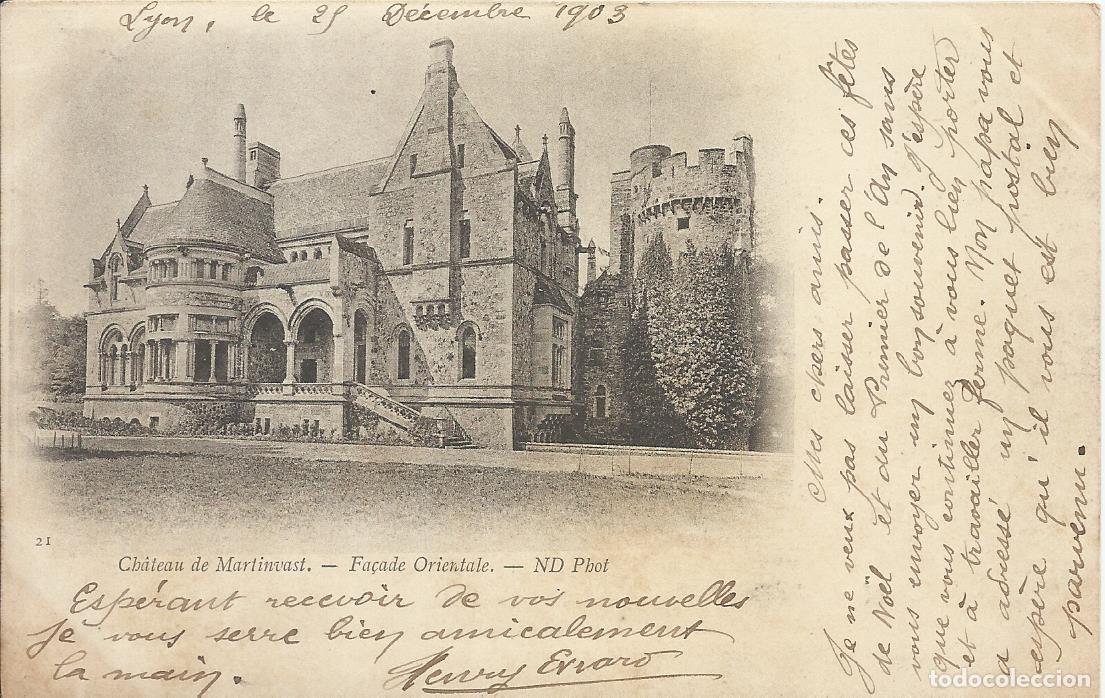 Lyon, le 25 Décembre 1903
Mes chers amis.
Je ne veux pas laisser passer ces fêtes
de Noël et du Premier de l'An sans
vous envoyer un bon souvenir. J'espère
que vous continuez à vous bien porter
et à travailler ferme. Mon papa vous
a adressé un paquet postal et
espère qu'il vous est bien
parvenu.
21
Château de Martinvast. — Façade Orientale. — ND Phot
Espérant recevoir de vos nouvelles
je vous serre bien amicalement
la main. Henry Evrard
todocoleccion